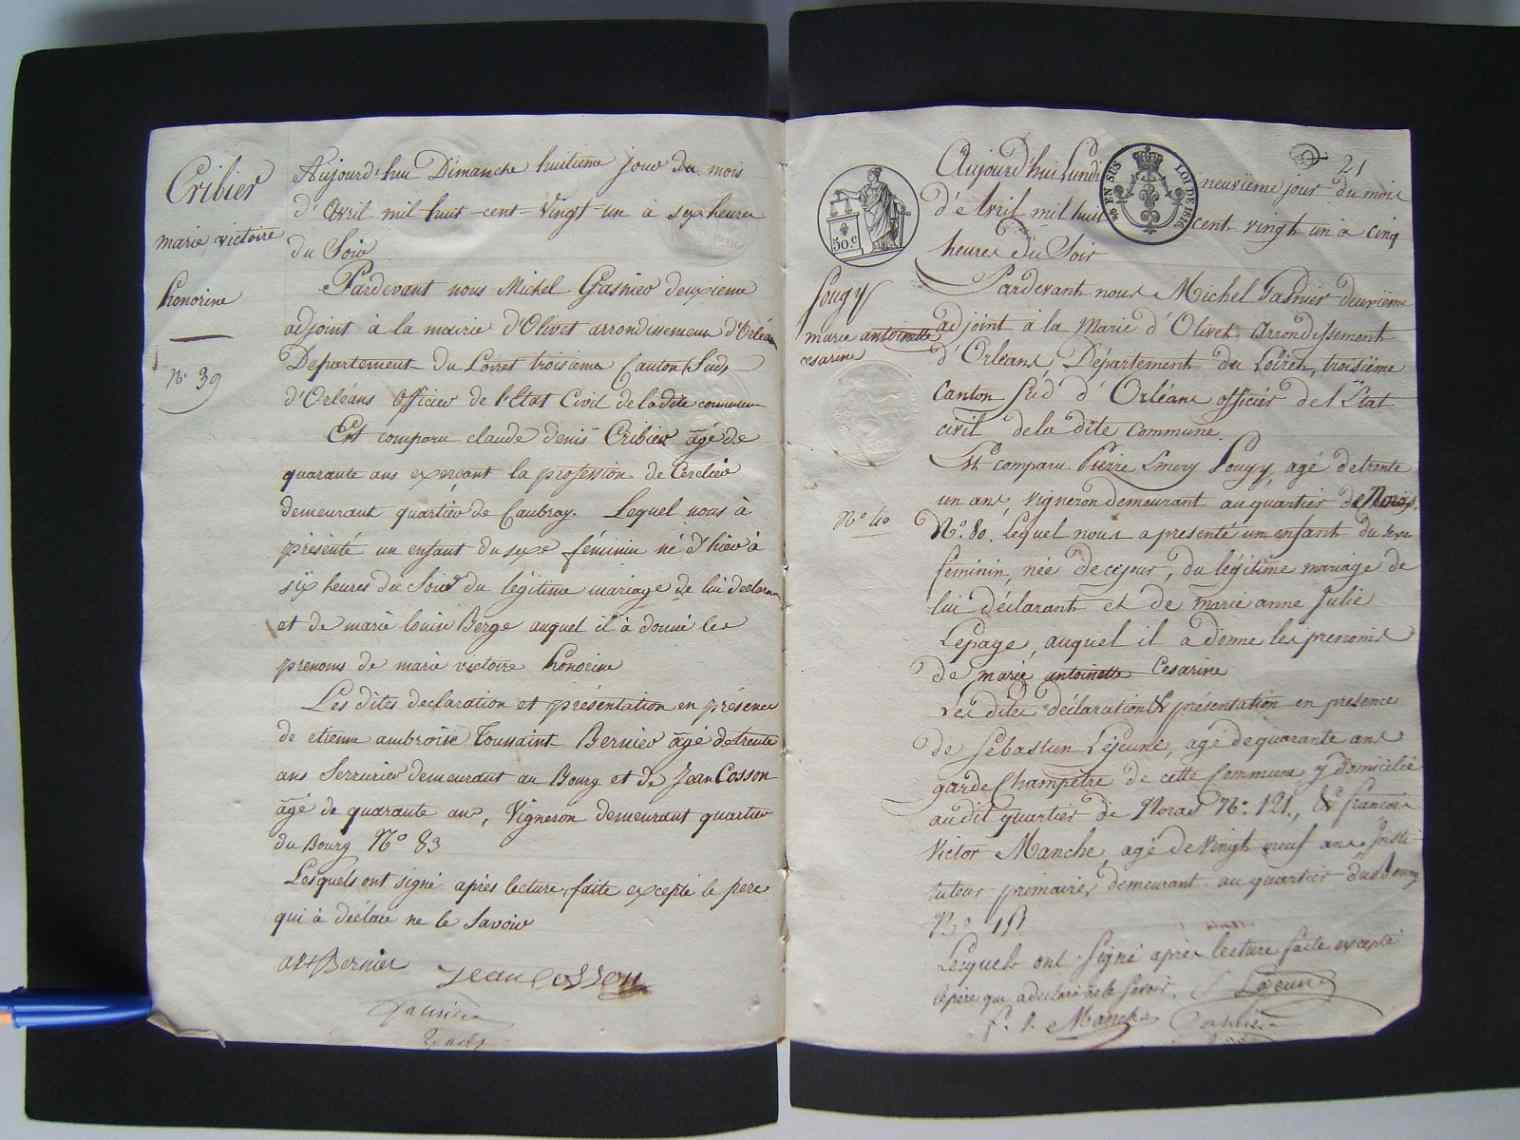 Cribier
marie victoire
honorine
N° 39
Aujourd'hui Dimanche huitieme jour du mois
d'Avril mil huit-cent-Vingt-un à six heures
du Soir
Pardevant nous Michel Gasnier deuxieme
adjoint à la mairie d'Olivet arrondissement d'Orléans
Département du Loiret troisieme Canton Sud
d'Orléans Officier de l'Etat Civil de la dite commune
Est comparu claude denis Cribier âgé de
quarante ans exerçant la profession de Cerclier
demeurant quartier de Caubray. Lequel nous à
présenté un enfant du sexe féminin né d'hier à
six heures du Soir du légitime mariage de lui declarant
et de marie louise Berge auquel il à donné les
prenoms de marie victoire honorine
Les dites declaration et présentation en présence
de etienne ambroise Toussaint Bernier âgé de trente
ans Serrurier demeurant au Bourg et de Jean Cosson
âgé de quarante ans, Vigneron demeurant quartier
du Bourg N° 83
Lesquels ont signé après lecture faite excepté le pere
qui à déclaré ne le Savoir
Bernier
Jean Cosson
Gasnier
21
Aujourd'hui Lundi neuvième jour du mois
d'Avril mil huit cent vingt un a cinq
heures du Soir
50 EN SUS
LOI DE 1816
50.c
Pougy
marie antoinette
cesarine
N° 40
Pardevant nous Michel Gasnier deuxième
adjoint à la Marie d'Olivet, arrondissement
d'Orléans, Département du Loiret, troisième
Canton Sud d'Orléans officier de l'Etat
civil de la dite Commune.
Est comparu Pierre Emery Pougy, agé de trente
un ans, vigneron demeurant au quartier de Noras,
N° 80. Lequel nous a presenté un enfant du sexe
féminin, née de ce jour, du légitime mariage de
lui déclarant et de marie anne Julie
Lepage, auquel il a donne les prenoms
de marie antoinette Cesarine
Les dites déclaration & présentation en presence
de Sébastien Lejeune, agé de quarante ans
garde Champêtre de cette Commune y domicilié
audit quartier de Noras N° 121, & françois
Victor Manche, agé de vingt neuf ans Insti
tuteur primaire, demeurant au quartier du Bourg
Lesquels ont Signé après lecture faite excepté
le père qui a déclaré ne le Savoir.
S Lejeune
f. v. Manche
Gasnier